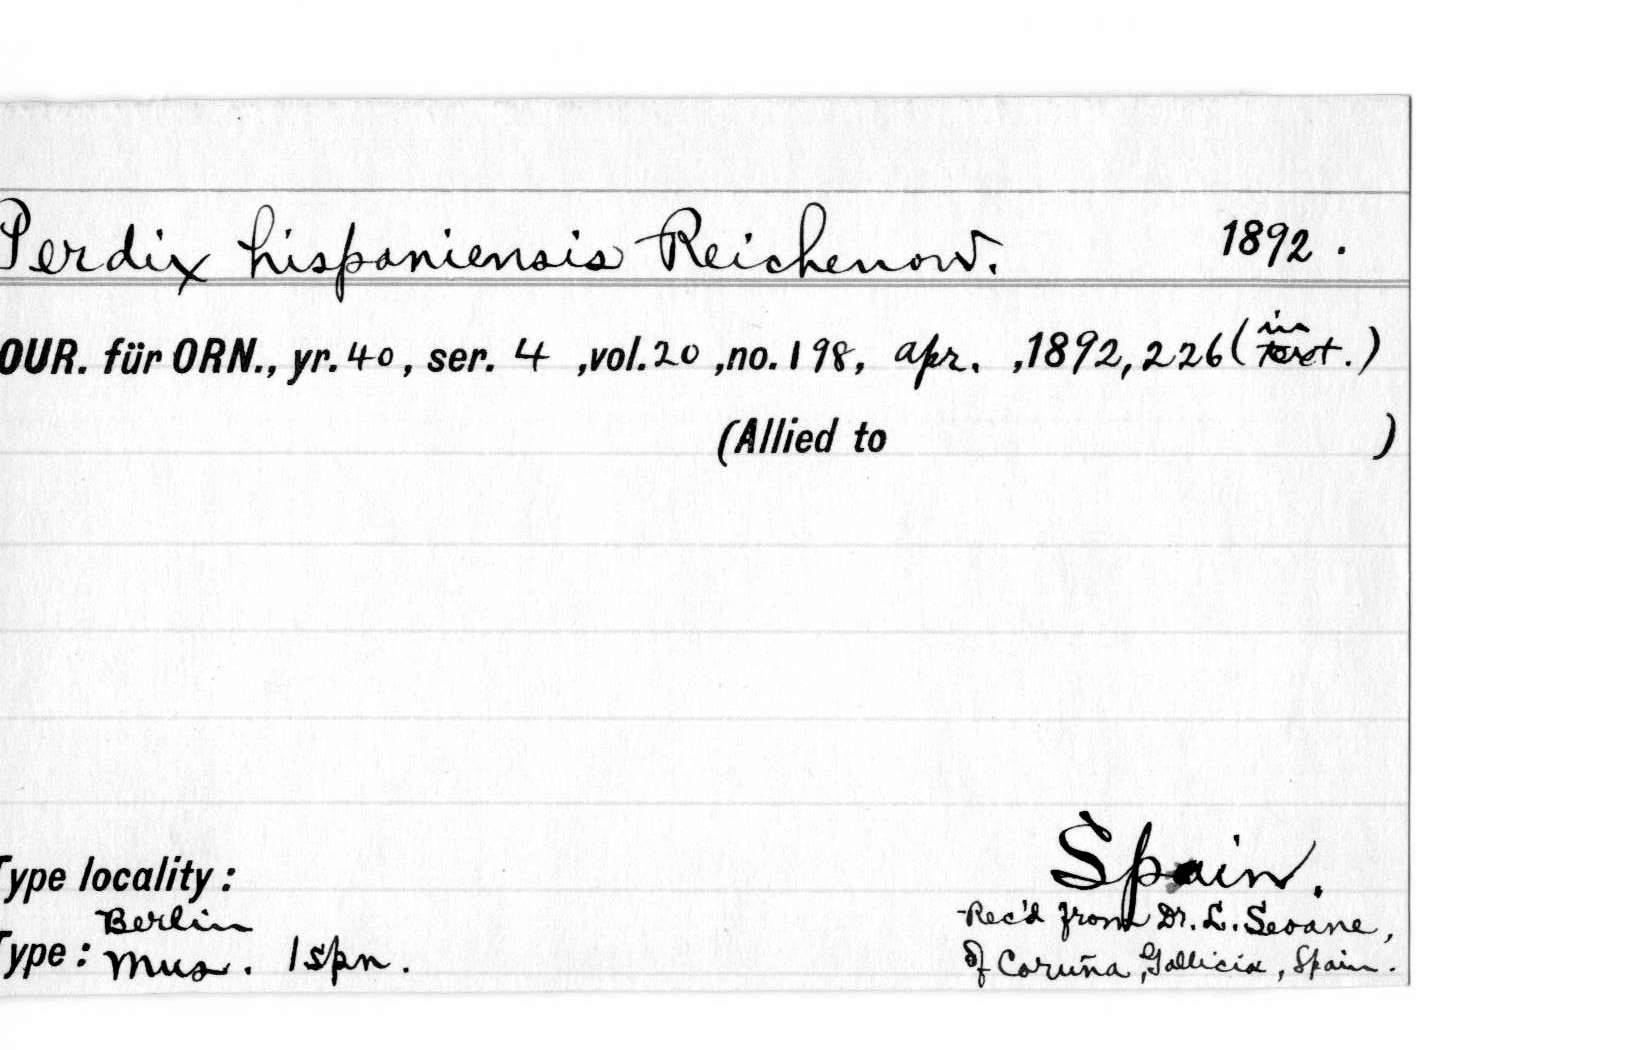 Perdix hispaniensis Reichenow. 1892.
OUR. für ORN., yr. 40, ser. 4 ,vol. 20 ,no. 198, apr. ,1892, 226 (in text.)
(Allied to )
Type locality: Spain.
Rec'd from Dr. L. Seoane,
of Coruña, Gallicia, Spain.
Type: Berlin Mus. 1 spn.